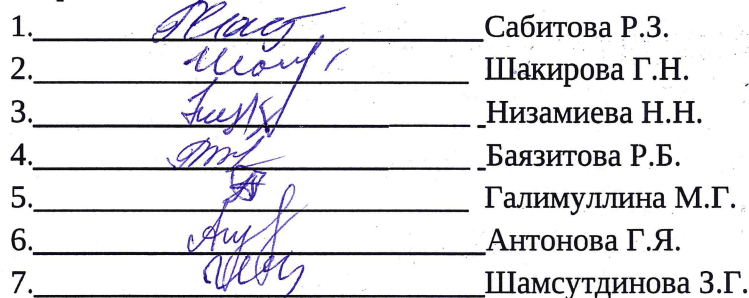 1.____________________Сабитова Р.З.
2.____________________Шакирова Г.Н.
3.____________________Низамиева Н.Н.
4.____________________Баязитова Р.Б.
5.____________________Галимуллина М.Г.
6.____________________Антонова Г.Я.
7.____________________Шамсутдинова З.Г.